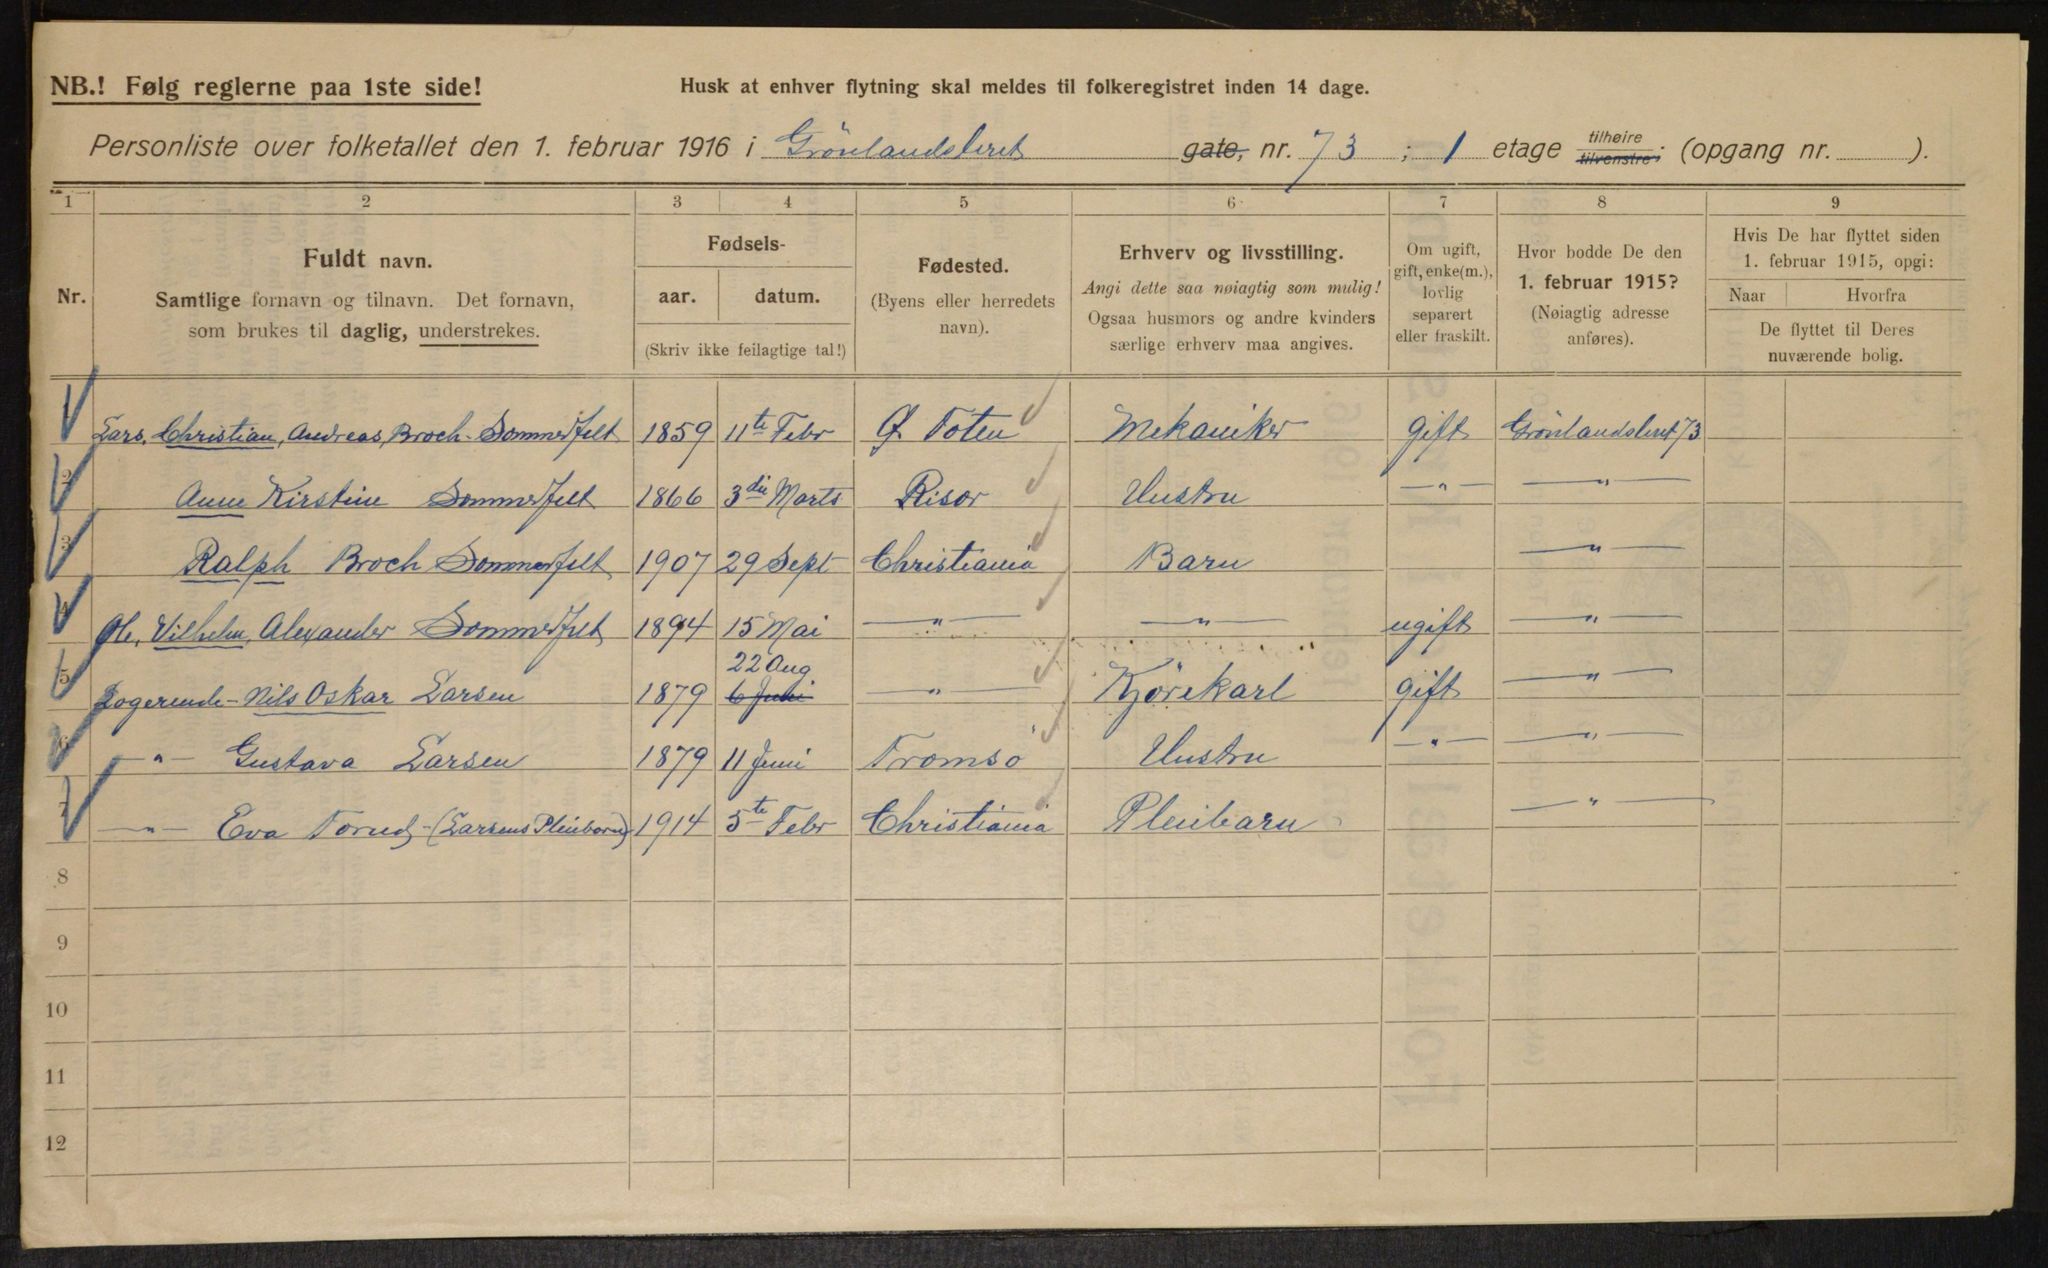 NB.! Følg reglerne paa 1ste side!
Husk at enhver flytning skal meldes til folkeregistret inden 14 dage.
Personliste over folketallet den 1. februar 1916 i Grönlandsleret gate, nr. 73 ; 1 etage tilhøire tilvenstre; (opgang nr. ).
1 2 3 4 5 6 7 8 9
Nr.
Fuldt navn.
Samtlige fornavn og tilnavn. Det fornavn,
som brukes til daglig, understrekes.
Fødsels-
aar. datum.
(Skriv ikke feilagtige tal!)
Fødested.
(Byens eller herredets
navn).
Erhverv og livsstilling.
Angi dette saa nøiagtig som mulig!
Ogsaa husmors og andre kvinders
særlige erhverv maa angives.
Om ugift,
gift, enke(m.),
lovlig
separert
eller fraskilt.
Hvor bodde De den
1. februar 1915?
(Nøiagtig adresse
anføres).
Hvis De har flyttet siden
1. februar 1915, opgi:
Naar Hvorfra
De flyttet til Deres
nuværende bolig.
1 Lars, Christian, Andreas, Broch-Sommerfelt 1859 11te Febr Ø. Toten Mekaniker gift Grönlandsleret 73
2 Anne Kirstine Sommerfelt 1866 3die Marts Risør Hustru —"— —"—
3 Ralph Broch Sommerfelt 1907 29 Sept Christiania Barn —"—
4 Ole, Vilhelm, Alexander Sommerfelt 1894 15 Mai —"— —"— ugift —"—
5 Logerende - Nils Oskar Larsen 1879 22 Aug 6 Juni —"— Kjörekarl gift —"—
6 —"— Gustava Larsen 1879 11 Juni Tromsö Hustru —"— —"—
7 —"— Eva Torud - (Larsens Pleiebarn) 1914 5te Febr Christiania Pleiebarn —"—
8
9
10
11
12